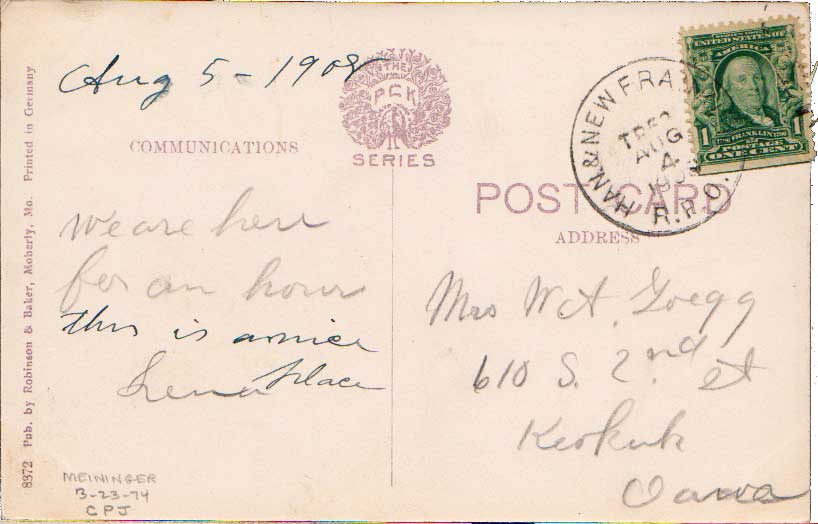 8372 Pub. by Robinson & Baker, Moberly, Mo. Printed in Germany
Aug 5 - 1908
THE
PCK
SERIES
COMMUNICATIONS
We are here
for an hour
this is a nice
place
Lena
MEININGER
3-23-74
CPJ
HAN. & NEW FRA
AUG
4
R.P.O.
UNITED STATES OF
AMERICA
FRANKLIN
1 1
POSTAGE
ONE CENT
POST CARD
ADDRESS
Mrs W. A. Gregg
610 S. 2nd st
Keokuk
Iowa